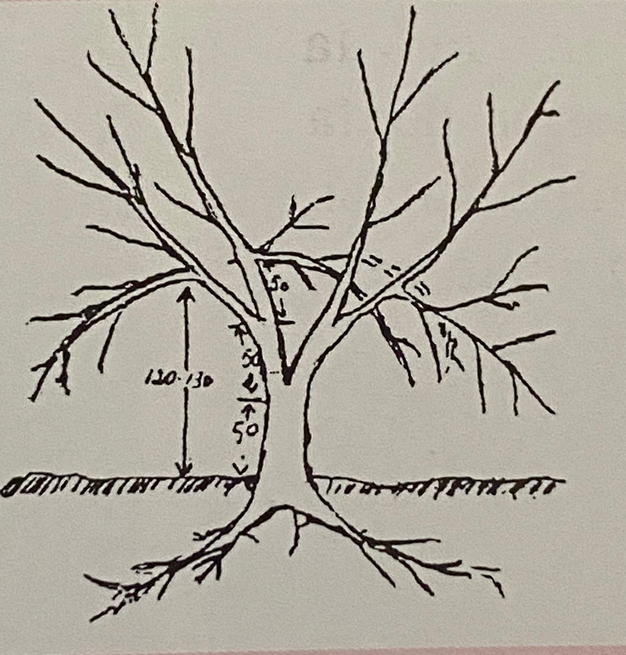 50
50
120-130
50